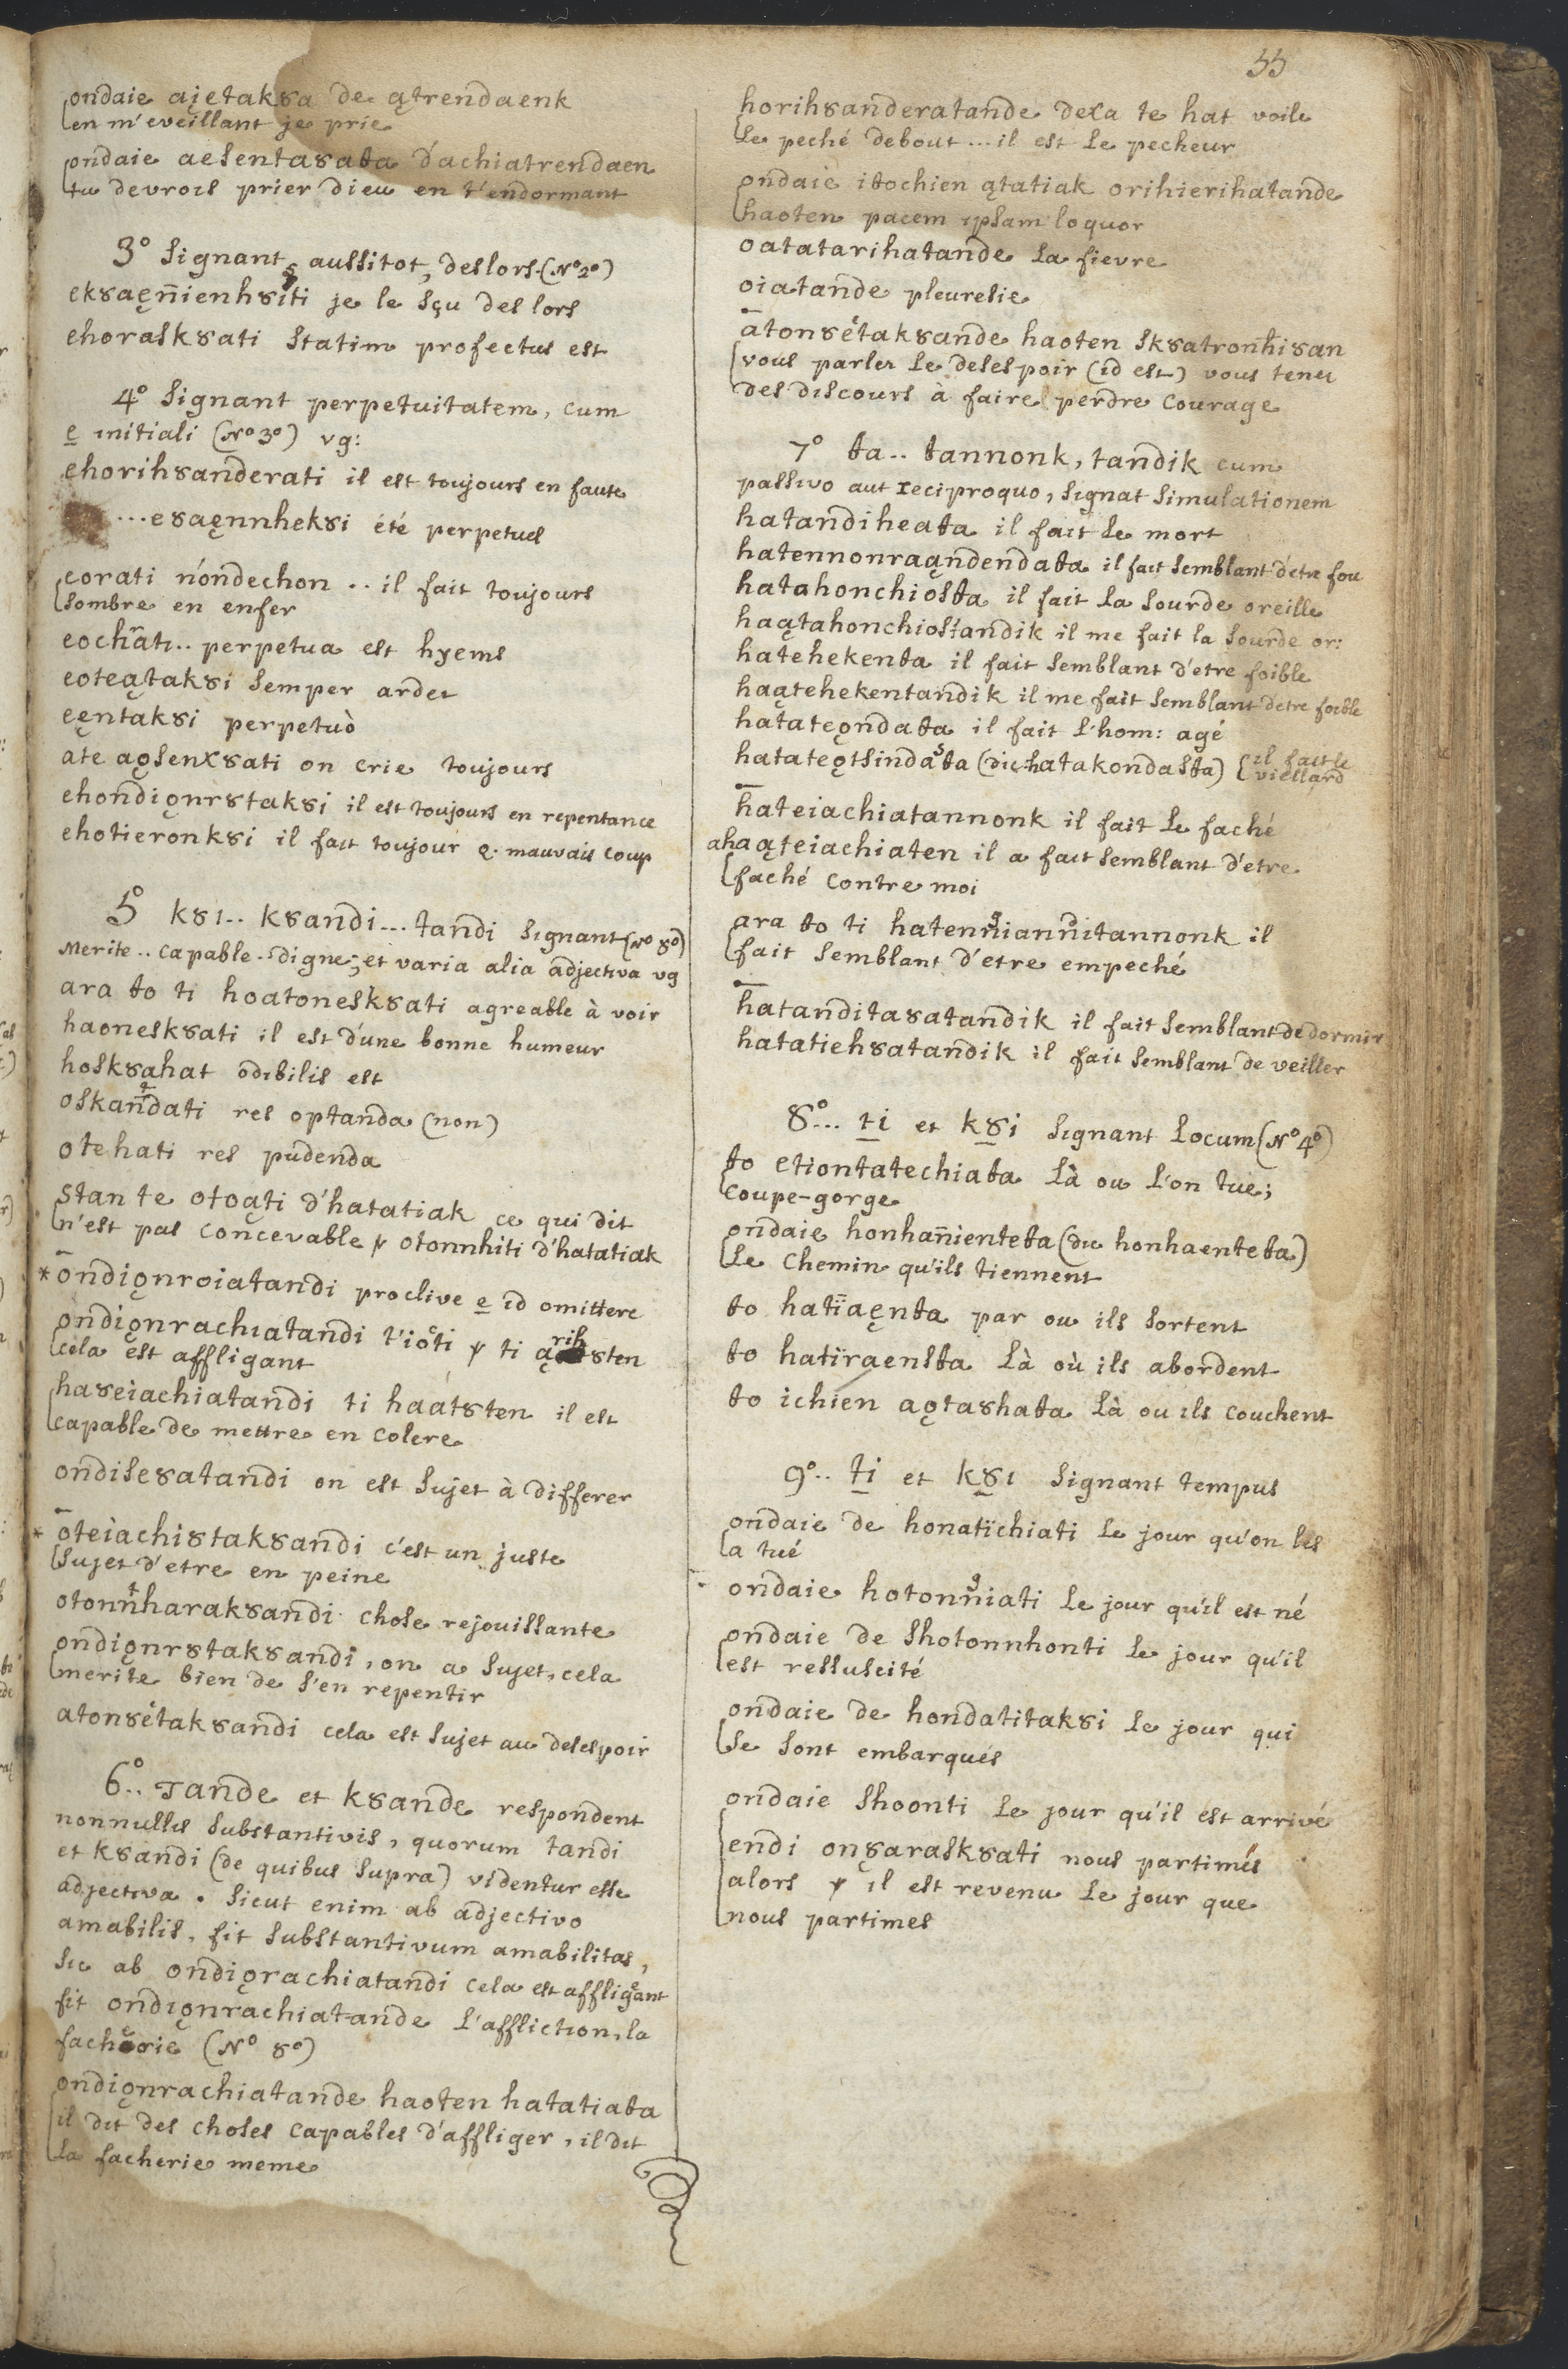 55
ondaie ąįetakȣa de ątrendaenk
en m'eveillant je prie
ondaie aesentaȣaŧa d'achiatrendaen
tu devrois prier dieu en t'endormant
3° signant, aussitot, deslors (N° 2°)
ekȣaęñienhȣiti je le sçu des lors
ehoraskȣati statim profectus est
4° signant perpetuitatem, cum
e initiali (N° 3°) vg:
ehorihȣanderati il est toujours en faute
...eȣaęnnhekȣi été perpetuel
eorati n'ondechon .. il fait toujours
sombre en enfer
eochrati.. perpetua est hyems
eoteątakȣi semper ardet
eęntakȣi perpetuò
ate aǫsenxȣati on crie toujours
ehondiǫnrȣtakȣi il est toujours en repentance
ehotieronkȣi il fait toujour q. mauvais coup
5° kȣi.. kȣandi... tandi signant (N° 8°)
Merite.. capable. digne; et varia alia adjectiva vg
ara ŧo ti hoatoneskȣati agreable à voir
haoneskȣati il est d'une bonne humeur
hoskȣahat odibilis est
oskandati res optanda (non)
otehati res pudenda
stan te otoąti d'hatatiak ce qui dit
n'est pas concevable ѱ otonnhiti d'hatatiak
* ondiǫnroiatandi proclive e id omittere
ondiǫnrachiatandi t'ioti ѱ ti ąrihȣten
cela est affligant
haȣeiachiatandi ti haatȣten il est
capable de mettre en colere
ondiseȣatandi on est sujet à differer
* oteiachiȣtakȣandi c'est un juste
sujet d'etre en peine
otonnharakȣandi chose rejouissante
ondiǫnrȣtakȣandi, on a sujet, cela
merite bien de s'en repentir
atonȣetakȣandi cela est sujet au desespoir
6°.. Tande et kȣande respondent
nonnullis substantivis, quorum tandi
et kȣandi (de quibus supra) videntur esse
adjectiva. sicut enim ab adjectivo
amabilis, fit substantivum amabilitas,
sic ab ondiǫrachiatandi cela est affligeant
fit ondiǫnrachiatande l'affliction, la
facherie (N° 8°)
ondiǫnrachiatande haoten hatatiaŧa
il dit des choses capables d'affliger, il dit
la facherie meme
horihȣanderatande dexa te hat voile
le peché debout... il est le pecheur
ondaie iŧochien ątatiak orihierihatande
haoten pacem ipsam loquor
oatatarihatande la fievre
oiatande pleuresie
atonȣetakȣande haoten skȣatronhiȣan
vous parler le desespoir (id est) vous tenez
des discours à faire perdre courage
7° ŧa.. ŧannonk, tandik cum
passivo aut reciproquo, signat simulationem
hatandiheaŧa il fait le mort
hatennonraąndendaŧa il fait semblant d'etre fou
hatahonchiosŧa il fait la sourde oreille
haątahonchiosiandik il me fait la sourde or:
hatehekenŧa il fait semblant d'etre foible
haątehekentandik il me fait semblant d'etre foible
hatateǫndaŧa il fait l'hom: agé
hatateǫtsindasŧa (dic hatakondasŧa) il fait le
viellard
hateiachiatannonk il fait le faché
ahaąteiachiaten il a fait semblant d'etre
faché contre moi
ara ŧo ti hatenniannitannonk il
fait semblant d'etre empeché
hatanditaȣatandik il fait semblant de dormir
hatatiehȣatandik il fait semblant de veiller
8°... ti et kȣi signant locum (N° 4°)
ŧo etiontatechiaŧa là ou l'on tue;
coupe-gorge
ondaie honhañienteŧa (dic honhaenteŧa)
le chemin qu'ils tiennent
ŧo hatiaęnŧa par ou ils sortent
ŧo hatiraensŧa là où ils abordent
ŧo ichien aǫtaȣhaŧa là ou ils couchent
9°.. ti et kȣi signant tempus
ondaie de honatichiati le jour qu'on les
a tué
ondaie hotonniati le jour qu'il est né
ondaie de shotonnhonti le jour qu'il
est ressuscité
ondaie de hondatitakȣi le jour qui
se sont embarqués
ondaie shoonti le jour qu'il est arrivé
endi onȣaraskȣati nous partimes
alors ѱ il est revenu le jour que
nous partimes